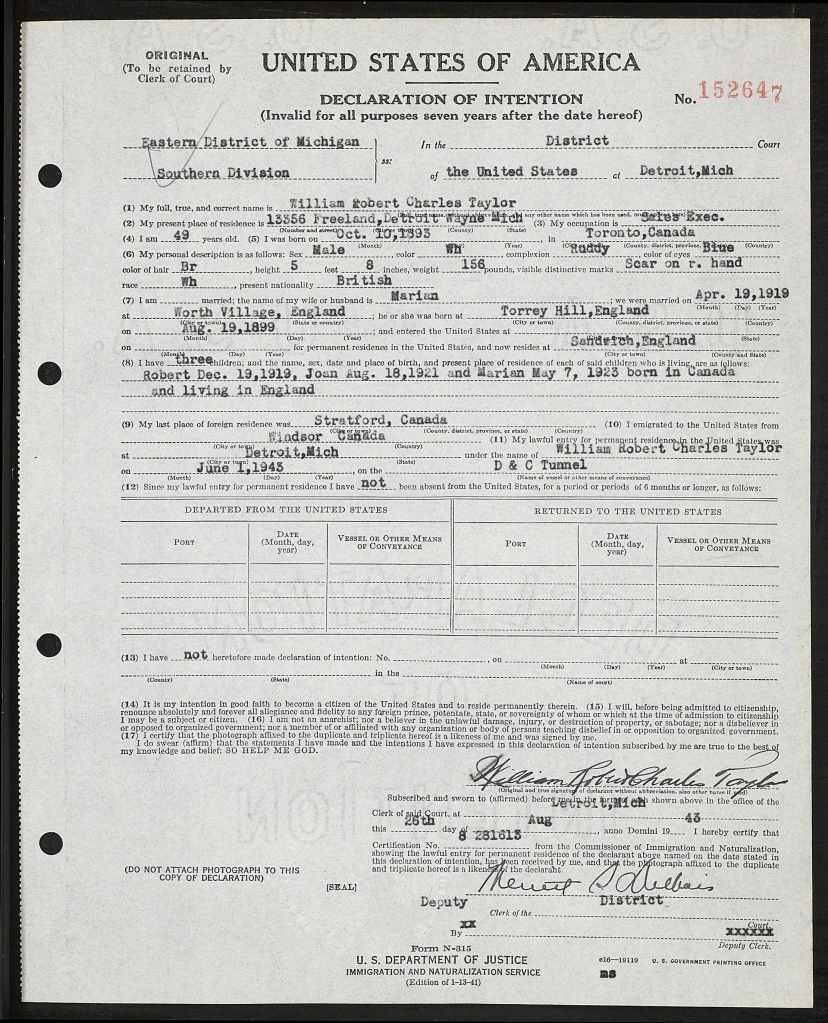 ORIGINAL
(To be retained by
Clerk of Court)
UNITED STATES OF AMERICA
DECLARATION OF INTENTION
(Invalid for all purposes seven years after the date hereof)
No. 152647
Eastern District of Michigan
Southern Division
ss:
In the District Court
of the United States at Detroit,Mich
(1) My full, true, and correct name is William Robert Charles Taylor
(2) My present place of residence is 13356 Freeland,Detroit Wayne Mich (3) My occupation is Sales Exec.
(Number and street) (County) (State)
(4) I am 49 years old. (5) I was born on Oct. 10,1893 in Toronto,Canada
(Month) (Day) (Year) (City or town) (County, district, province, or state) (Country)
(6) My personal description is as follows: Sex Male, color Wh, complexion Ruddy, color of eyes Blue
color of hair Br, height 5 feet 8 inches, weight 156 pounds, visible distinctive marks Scar on r. hand
race Wh, present nationality British
(7) I am married; the name of my wife or husband is Marian; we were married on Apr. 19,1919
(Month) (Day) (Year)
at Worth Village, England; he or she was born at Torrey Hill,England
(City or town) (State or country) (City or town) (County, district, province, or state) (Country)
on Aug. 19,1899; and entered the United States at
(Month) (Day) (Year) (City or town) (State)
on for permanent residence in the United States, and now resides at Sandwich,England
(Month) (Day) (Year) (City or town) (County and State)
(8) I have three children; and the name, sex, date and place of birth, and present place of residence of each of said children who is living, are as follows:
Robert Dec. 19,1919, Joan Aug. 18,1921 and Marian May 7, 1923 born in Canada
and living in England
(9) My last place of foreign residence was Stratford, Canada (10) I emigrated to the United States from
(City or town) (County, district, province, or state) (Country)
Windsor Canada (11) My lawful entry for permanent residence in the United States was
(City or town) (Country)
at Detroit,Mich under the name of William Robert Charles Taylor
(City or town) (State)
on June 1,1943, on the D & C Tunnel
(Month) (Day) (Year) (Name of vessel or other means of conveyance)
(12) Since my lawful entry for permanent residence I have not been absent from the United States, for a period or periods of 6 months or longer, as follows:
DEPARTED FROM THE UNITED STATES RETURNED TO THE UNITED STATES
PORT DATE (Month, day, year) VESSEL OR OTHER MEANS OF CONVEYANCE PORT DATE (Month, day, year) VESSEL OR OTHER MEANS OF CONVEYANCE
(13) I have not heretofore made declaration of intention: No. , on at
(Month) (Day) (Year) (City or town)
in the
(County) (State) (Name of court)
(14) It is my intention in good faith to become a citizen of the United States and to reside permanently therein. (15) I will, before being admitted to citizenship,
renounce absolutely and forever all allegiance and fidelity to any foreign prince, potentate, state, or sovereignty of whom or which at the time of admission to citizenship
I may be a subject or citizen. (16) I am not an anarchist; nor a believer in the unlawful damage, injury, or destruction of property, or sabotage; nor a disbeliever in
or opposed to organized government; nor a member of or affiliated with any organization or body of persons teaching disbelief in or opposition to organized government.
(17) I certify that the photograph affixed to the duplicate and triplicate hereof is a likeness of me and was signed by me.
I do swear (affirm) that the statements I have made and the intentions I have expressed in this declaration of intention subscribed by me are true to the best of
my knowledge and belief: SO HELP ME GOD.
William Robert Charles Taylor
(Original and true signature of declarant without abbreviation, also other name if used)
Subscribed and sworn to (affirmed) before me in the form of oath shown above in the office of the
Clerk of said Court, at Detroit,Mich
this 26th day of Aug, anno Domini 19 43 I hereby certify that
Certification No. 8 281613 from the Commissioner of Immigration and Naturalization,
showing the lawful entry for permanent residence of the declarant above named on the date stated in
this declaration of intention, has been received by me, and that the photograph affixed to the duplicate
and triplicate hereof is a likeness of the declarant.
(DO NOT ATTACH PHOTOGRAPH TO THIS
COPY OF DECLARATION)
[SEAL]
Deputy Clerk of the District Court.
By xx xxxxxx
Deputy Clerk.
Form N-315
U. S. DEPARTMENT OF JUSTICE
IMMIGRATION AND NATURALIZATION SERVICE
(Edition of 1-13-41)
c16-19119 U. S. GOVERNMENT PRINTING OFFICE
ms